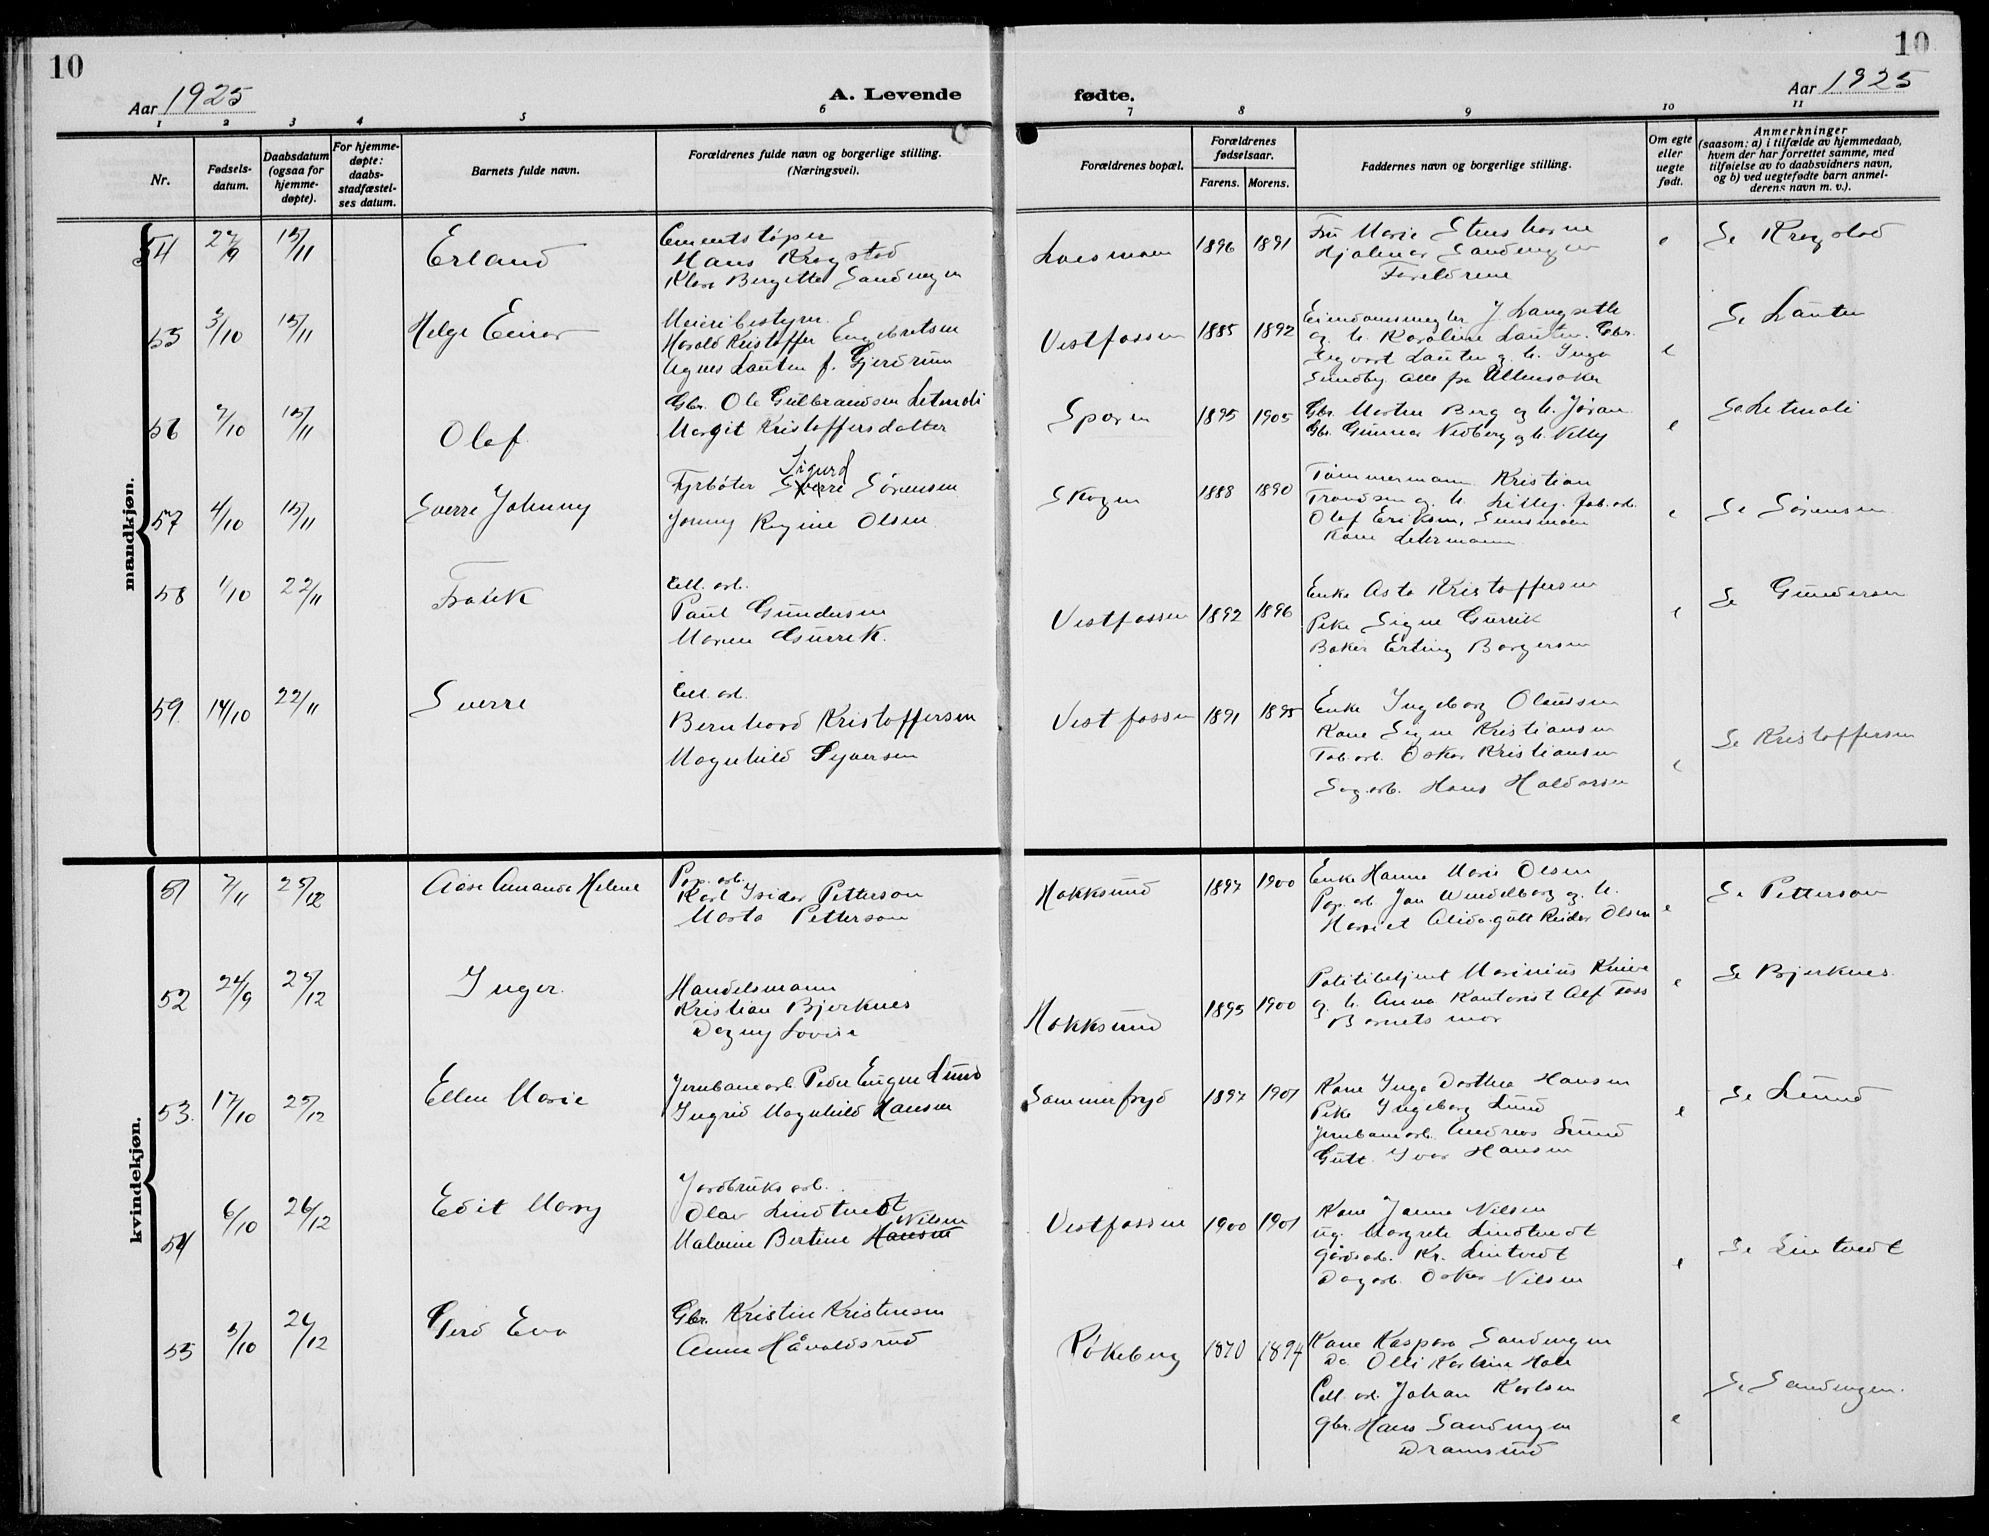 10
Aar 1925
A. Levende
1 2 3 4 5 6
Nr.
Fødsels-
datum.
Daabsdatum
(ogsaa for
hjemme-
døpte).
For hjemme-
døpte:
daabs-
stadfæstel-
ses datum.
Barnets fulde navn.
Forældrenes fulde navn og borgerlige stilling.
(Næringsvei).
mandkjøn.
54 27/9 15/11 Erland
Cementstøper
Hans Krogstad
Klara Bergitte Sandungen
55 3/10 15/11 Helge Einar
Meieribestyrer
Harald Kristoffer Engebretsen
Agnes Lauten f. Gjerdrum
56 7/10 15/11 Olaf
Gbr. Ole Gulbrandsen Letmoli
Margit Kristoffersdatter
57 4/10 15/11 Sverre Johnny
Sigurd
Fyrbøter Sverre Sørensen
Jenny Regine Olsen
58 1/10 22/11 Frank
Cell. arb.
Paul Gundersen
Maren Gurrik.
59 14/10 22/11 Sverre
Cell. arb.
Bernhard Kristoffersen
Magnhild Syversen
kvindekjøn.
51 7/11 25/12 Aase Amanda Helene
Pap. arb.
Karl Isidor Petterson
Marta Petterson
52 24/9 25/12 Inger
Handelsmann
Kristian Bjerknes
Dagny Lovise
53. 17/10 25/12 Ellen Marie
Jernbanearb. Peder Eugen Lund
Ingrid Magnhild Hansen
54 6/10 26/12 Edit Marry
Jordbruks arb.
Olav Lindtvedt
Nilsen
Malvine Bertine Hansen
55 3/10 26/12 Gerd Eva
Gbr. Kristin Kristensen
Anne Håvaldsrud
10
Aar 1925
fødte.
7 8 9 10 11
Forældrenes bopæl.
Forældrenes
fødselsaar.
Farens. Morens.
Faddernes navn og borgerlige stilling.
Om egte
eller
uegte
født.
Anmerkninger
(saasom: a) i tilfælde av hjemmedaab,
hvem der har forrettet samme, med
tilføielse av to daabsvidners navn,
og b) ved uegtefødte barn anmel-
derens navn m. v.).
Loesmoen 1896 1891
Fru Marie Stenshorne
Hjalmar Sandungen
Foreldrene
e Se Krogstad
Vestfossen 1885 1892
Eiendomsmegler J. Langseth
og h. Karoline Lauten. Gbr.
Sigvart Lauten og h. Inga
Sundby alle fra Ullensaker
e Se Lauten
Sporen 1895 1905
Gbr. Morten Berg og h. Jøran
Gbr. Gunnar Nedberg og h. Nelly
e Se Letmoli
Skogen 1888 1890
Tømmermann Kristian
Trondsen og h. Lilly. Fab. arb.
Olaf Eriksen,
Kone
e Se Sørensen
Vestfossen 1892 1896
Enke Asta Kristoffersen
Pike Signe Gurrik
Baker Erling Borgersen
e Se Gundersen
Vestfossen 1891 1895
Enke Ingeborg Olaussen
Kone Signe Kristiansen
Fab. arb. Oskar Kristiansen
Sag arb. Hans Haldorsen
e Se Kristoffersen
Hokksund 1897 1900
Enke Hanna Marie Olsen
Pap. arb. Jon Wendelborg og h.
Harriet Alida. gutt Reidar Olsen
e Se Petterson
Hokksund 1895 1900
Politibetjent Marinius Knive
og h. Anna Kontorist Alf Foss
Barnets mor
e Se Bjerknes
Sommerfryd 1897 1901
Kone Inga Dorthea Hansen
Pike Ingeborg Lund
Jernbanearb. Andreas Lund
Gutt. Ivar Hansen
e Se Lund
Vestfossen 1900 1901
Kone Janna Nilsen
Ug. Margrete Lindtvedt
Gårdsarb. Kr. Lintvedt
Dagarb. Oskar Nilsen
e Se Lintvedt
Røkeberg 1870 1894
Kone Kaspara Sandungen
Do Olli Karline Hole
Cell. arb. Johan Karlsen
Gbr. Hans Sandungen
Dramsrud
e Se Sandungen.